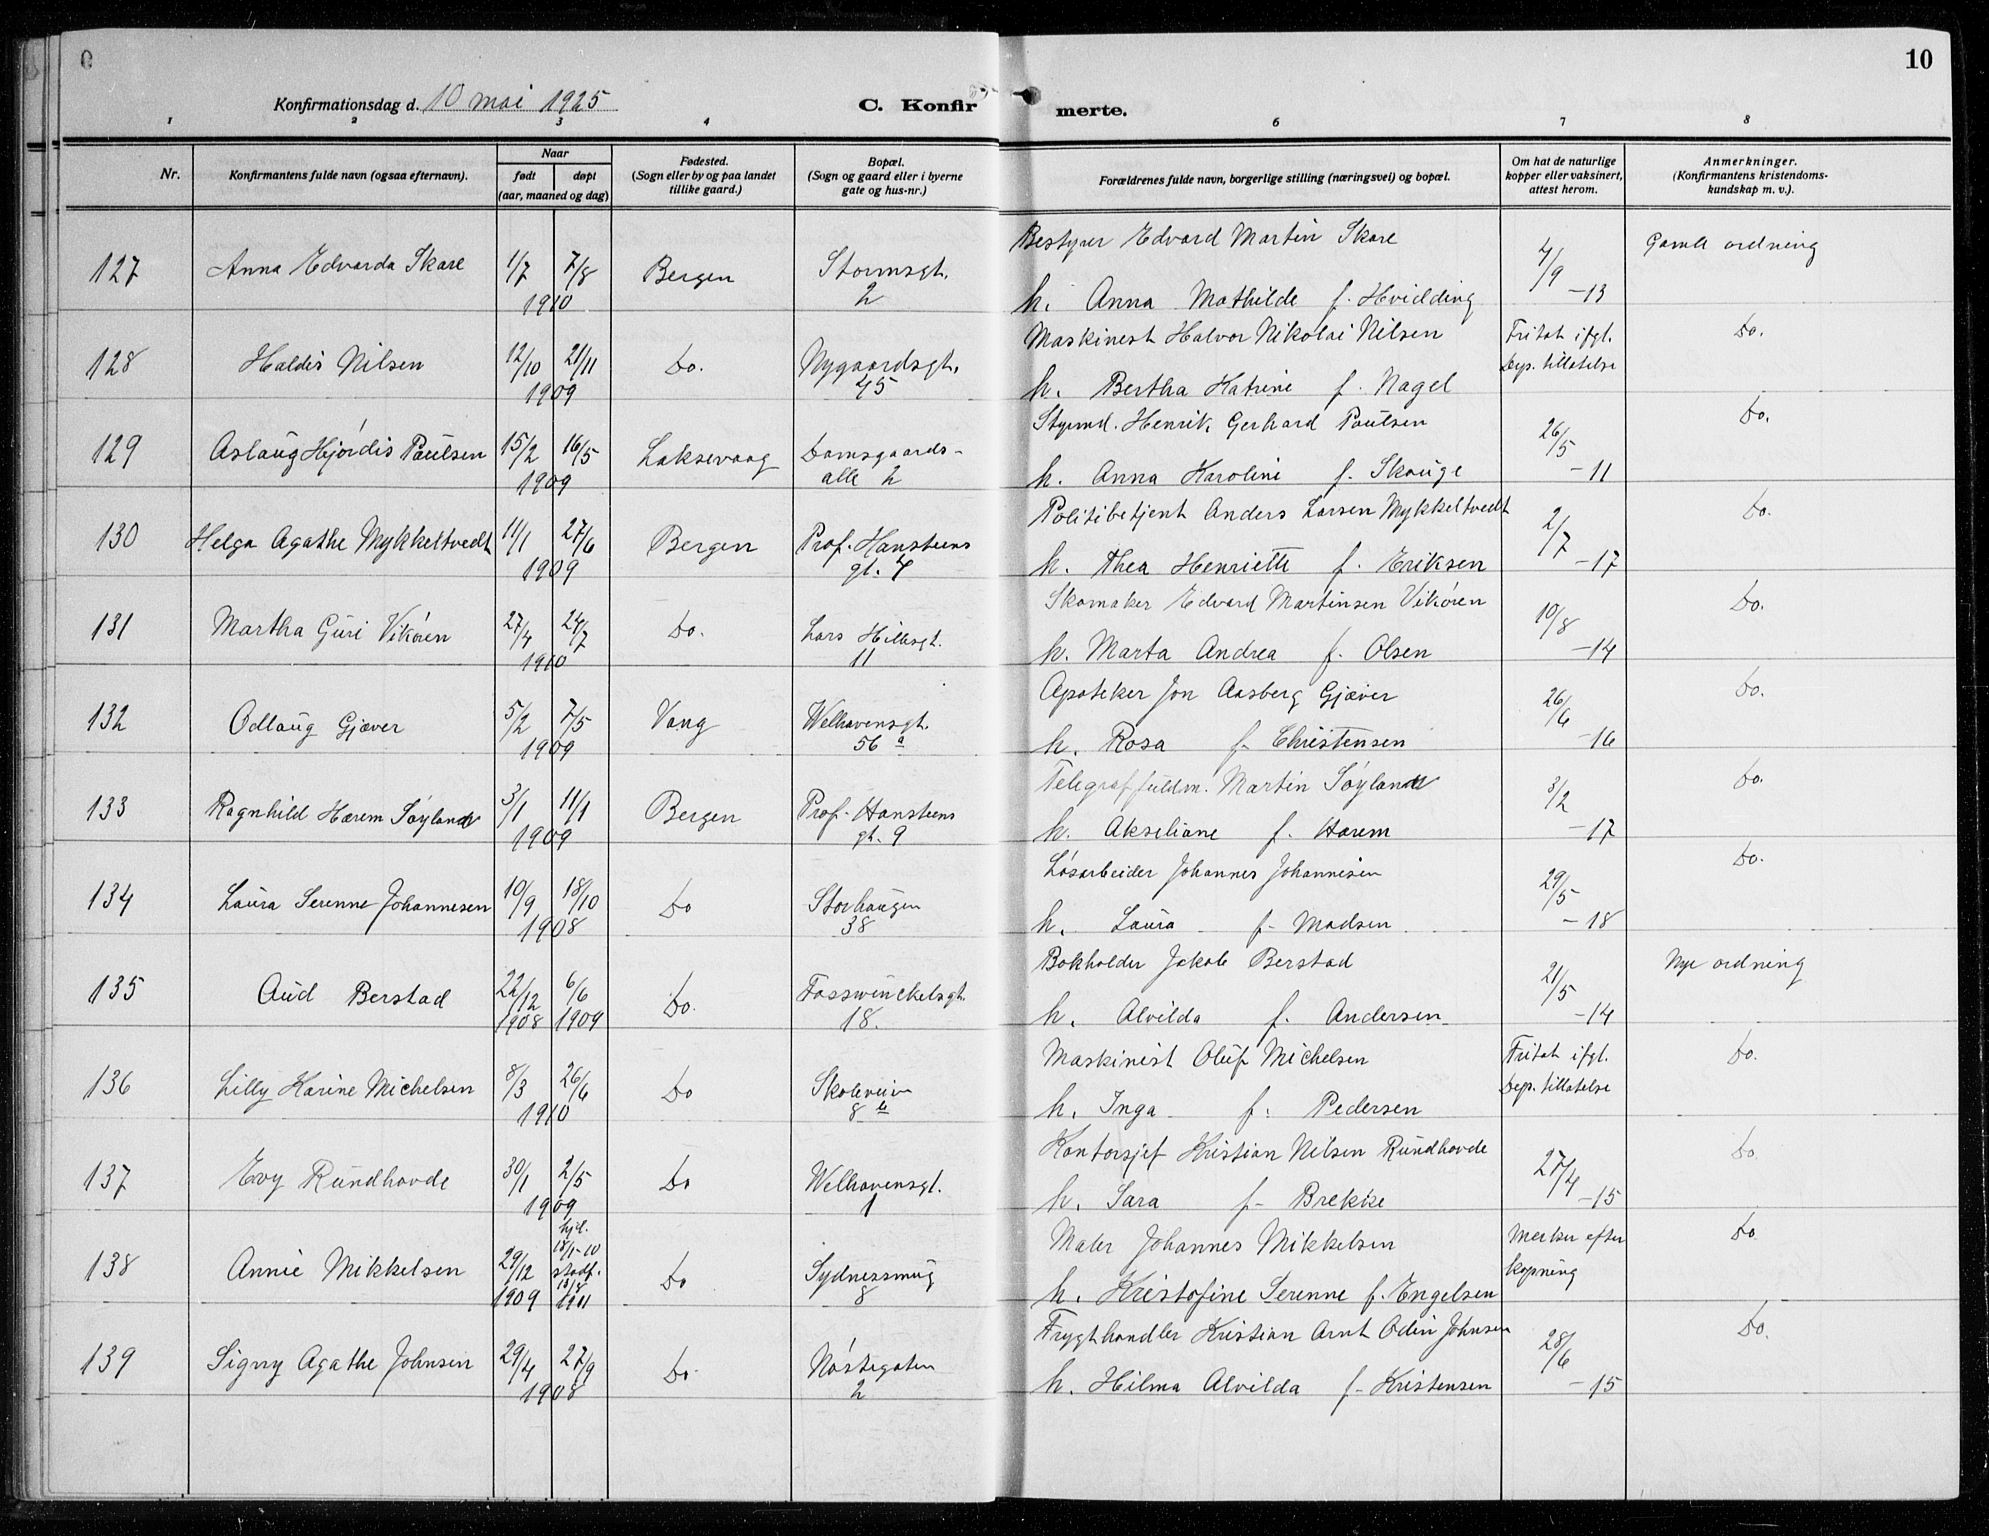 10
Konfirmationsdag d. 10 mai 1925
C. Konfir merte.
1 2 3 4 6 7 8
Nr.
Konfirmantens fulde navn (ogsaa efternavn).
Naar
født døpt
(aar, maaned og dag)
Fødested.
(Sogn eller by og paa landet
tillike gaard.)
Bopæl.
(Sogn og gaard eller i byerne
gate og hus-nr.)
Forældrenes fulde navn, borgerlige stilling (næringsvei) og bopæl.
Om hat de naturlige
kopper eller vaksinert,
attest herom.
Anmerkninger.
(Konfirmantens kristendoms-
kundskap m. v.).
Bestyrer Edvard Martin Skare
Gamle ordning
127 Anna Edvarda Skare 1/7 7/8 Bergen Stormsgt. 4/9
1910 2 h. Anna Mathilde f. Hvidding -13
Maskinest Halvor Nikolai Nilsen Fritat ifgl. Do.
128 Haldis Nilsen 12/10 21/11 Do. Nygaardsgt. Dep. tillatelse
1909 45 h. Bertha Katrine f. Nagel
Styrmd. Henrik Gerhard Paulsen Do.
129 Aslaug Hjørdis Paulsen 15/2 16/5 Laksevaag Damsgaards- 26/5
1909 alle 2 h. Anna Karoline f. Skauge -11
Politibetjent Anders Larsen Mykkeltvedt Do.
130 Helga Agathe Mykkeltvedt 11/1 27/6 Bergen Prof. Hansteens 2/7
1909 gt. 7 h. Thea Henriette f. Eriksen -17
Skomaker Edvard Martinsen Vikøren Do.
131 Martha Guri Vikøren 27/4 24/7 Do. Lars Hillesgt. 10/8
1910 11 h. Marta Andrea f. Olsen -14
Apoteker Jon Aasberg Gjæver Do.
132 Odlaug Gjæver 5/2 7/5 Vang Welhavensgt. 26/6
1909 56 a h. Rosa f. Christensen -16
Telegraffuldm. Martin Søyland Do.
133 Ragnhild Hærem Søyland 3/1 11/1 Bergen Prof. Hansteens 3/2
1909 gt. 9 h. Akseliane f. Harem -17
Løsarbeider Johannes Johannesen Do.
134 Laura Serenne Johannesen 10/9 18/10 Do Storhaugen 29/5
1908 38 h. Laura f. Madsen -18
Bokholder Jakob Berstad Nye ordning
135 Aud Berstad 22/12 6/6 Do. Fosswinckelsgt. 21/5
1908 1909 18. h. Alvilda f. Andersen -14
Maskinist Oluf Michelsen Fritat ifgl. Do.
136 Lilly Karine Michelsen 8/3 26/6 Do Skoleveien Dep. tillatelse
1910 8 b h. Inga f. Pedersen
Kontorsjef Kristian Nilsen Rundhovde Do.
137 Evy Rundhovde 30/1 2/5 Do Welhavensgt. 27/4
1909 1 h. Sara f. Brekke -15
hjd. Maler Johannes Mikkelsen Merker efter Do
138 Annie Mikkelsen 29/12 18/1-10 stadf. Do Sydnessmug kopning
1909 1911 8 h. Kristofine Serenne f. Engelsen
Frugthandler Kristian Arnt Odin Johnsen Do.
139 Signy Agathe Johnsen 29/4 27/9 Do. Nøstegaten 28/6
1908 2 h. Hilma Alvilda f. Kristensen -15